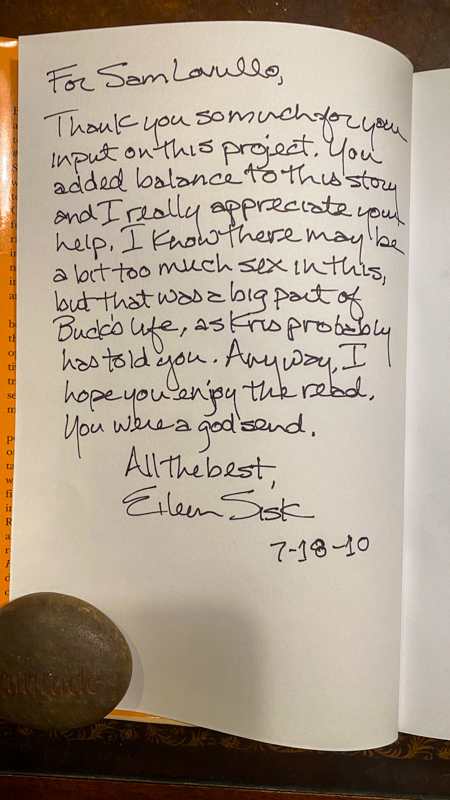 For Sam Lovullo,
Thank you so much for your
input on this project. You
added balance to this story
and I really appreciate your
help. I know there may be
a bit too much sex in this,
but that was a big part of
Buck's life, as Kris probably
has told you. Anyway, I
hope you enjoy the read.
You were a godsend.
All the best,
Eileen Sisk
7-18-10